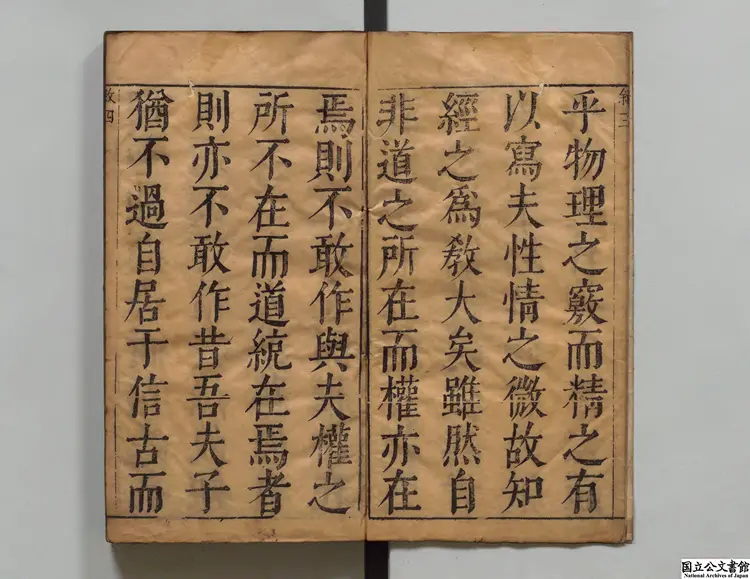 乎物理之竅而精之有
以寫夫性情之微故知
經之爲教大矣雖然自
非道之所在而權亦在
焉則不敢作與夫權之
所不在而道統在焉者
則亦不敢作昔吾夫子
猶不過自居于信古而
国立公文書館
National Archives of Japan